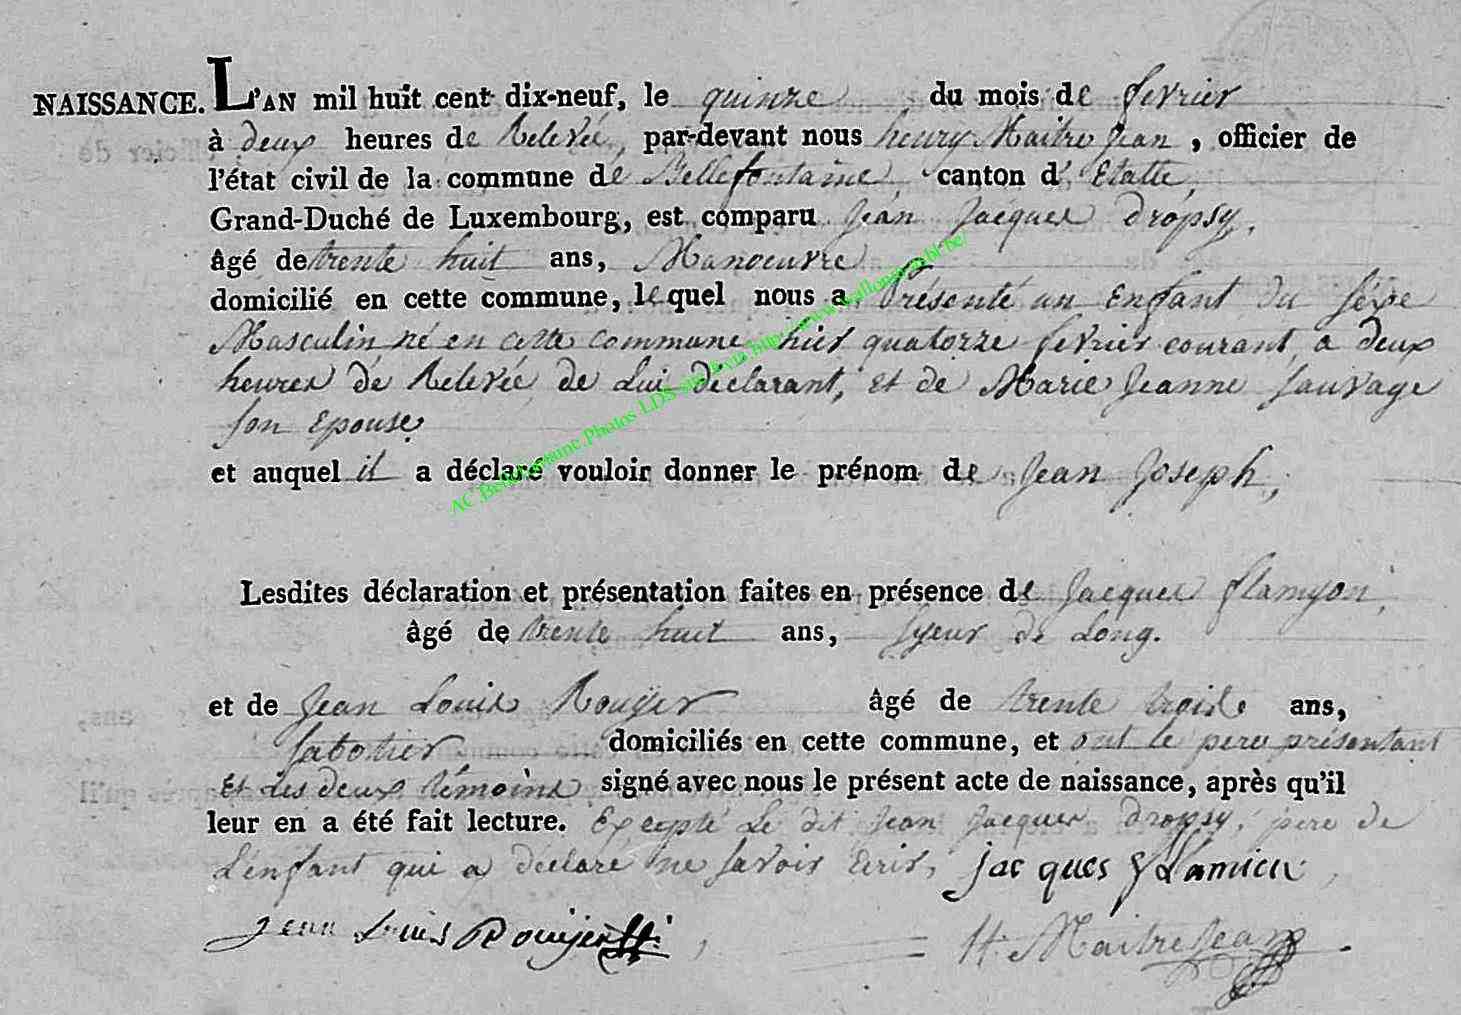 NAISSANCE. L'AN mil huit cent dix-neuf, le quinze du mois de fevrier
à deux heures de Relevée, par-devant nous henry Maitre Jean, officier de
l'état civil de la commune de Bellefontaine, canton d'Etalle,
Grand-Duché de Luxembourg, est comparu Jean Jacques dropsy,
âgé de trente huit ans, Manoeuvre
domicilié en cette commune, lequel nous a Présenté un Enfant du Séxe
Masculin né en cette commune hier quatorze fevrier courant, a deux
heures de Relevée, de Lui déclarant, et de Marie Jeanne Sauvage
son Epouse
et auquel il a déclaré vouloir donner le prénom de Jean Joseph,
AC Bellefontaine Photos LDS http://www.
Lesdites déclaration et présentation faites en présence de Jacques flamyon,
âgé de trente huit ans, Syeur de Long.
et de Jean Louis Rouÿer âgé de trente trois ans,
Sabotier domiciliés en cette commune, et ont le pere présentant
et les deux témoins signé avec nous le présent acte de naissance, après qu'il
leur en a été fait lecture. Excepté Le dit Jean Jacques dropsy, pere de
L'enfant qui a déclaré ne savoir Ecrir, jacques
Jean Louis Rouijer H. MaitreJean